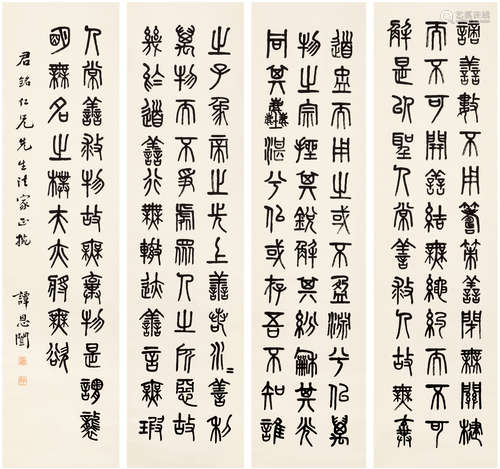 謫善數不用籌策善閉無關楗
而不可開善結無繩約而不可
解是以聖人常善救人故無棄
道盅而用之或不盈淵兮似萬
物之宗挫其銳解其紛龢其光
同其塵湛兮似或存吾不知誰
之子象帝之先上善若水=善利
萬物而不爭處眾人之所惡故
幾於道善行無轍迹善言無瑕
人常善救物故無棄物是謂襲
明無名之樸夫亦將無欲
君銘仁兄先生法家正捥 譚恩闓